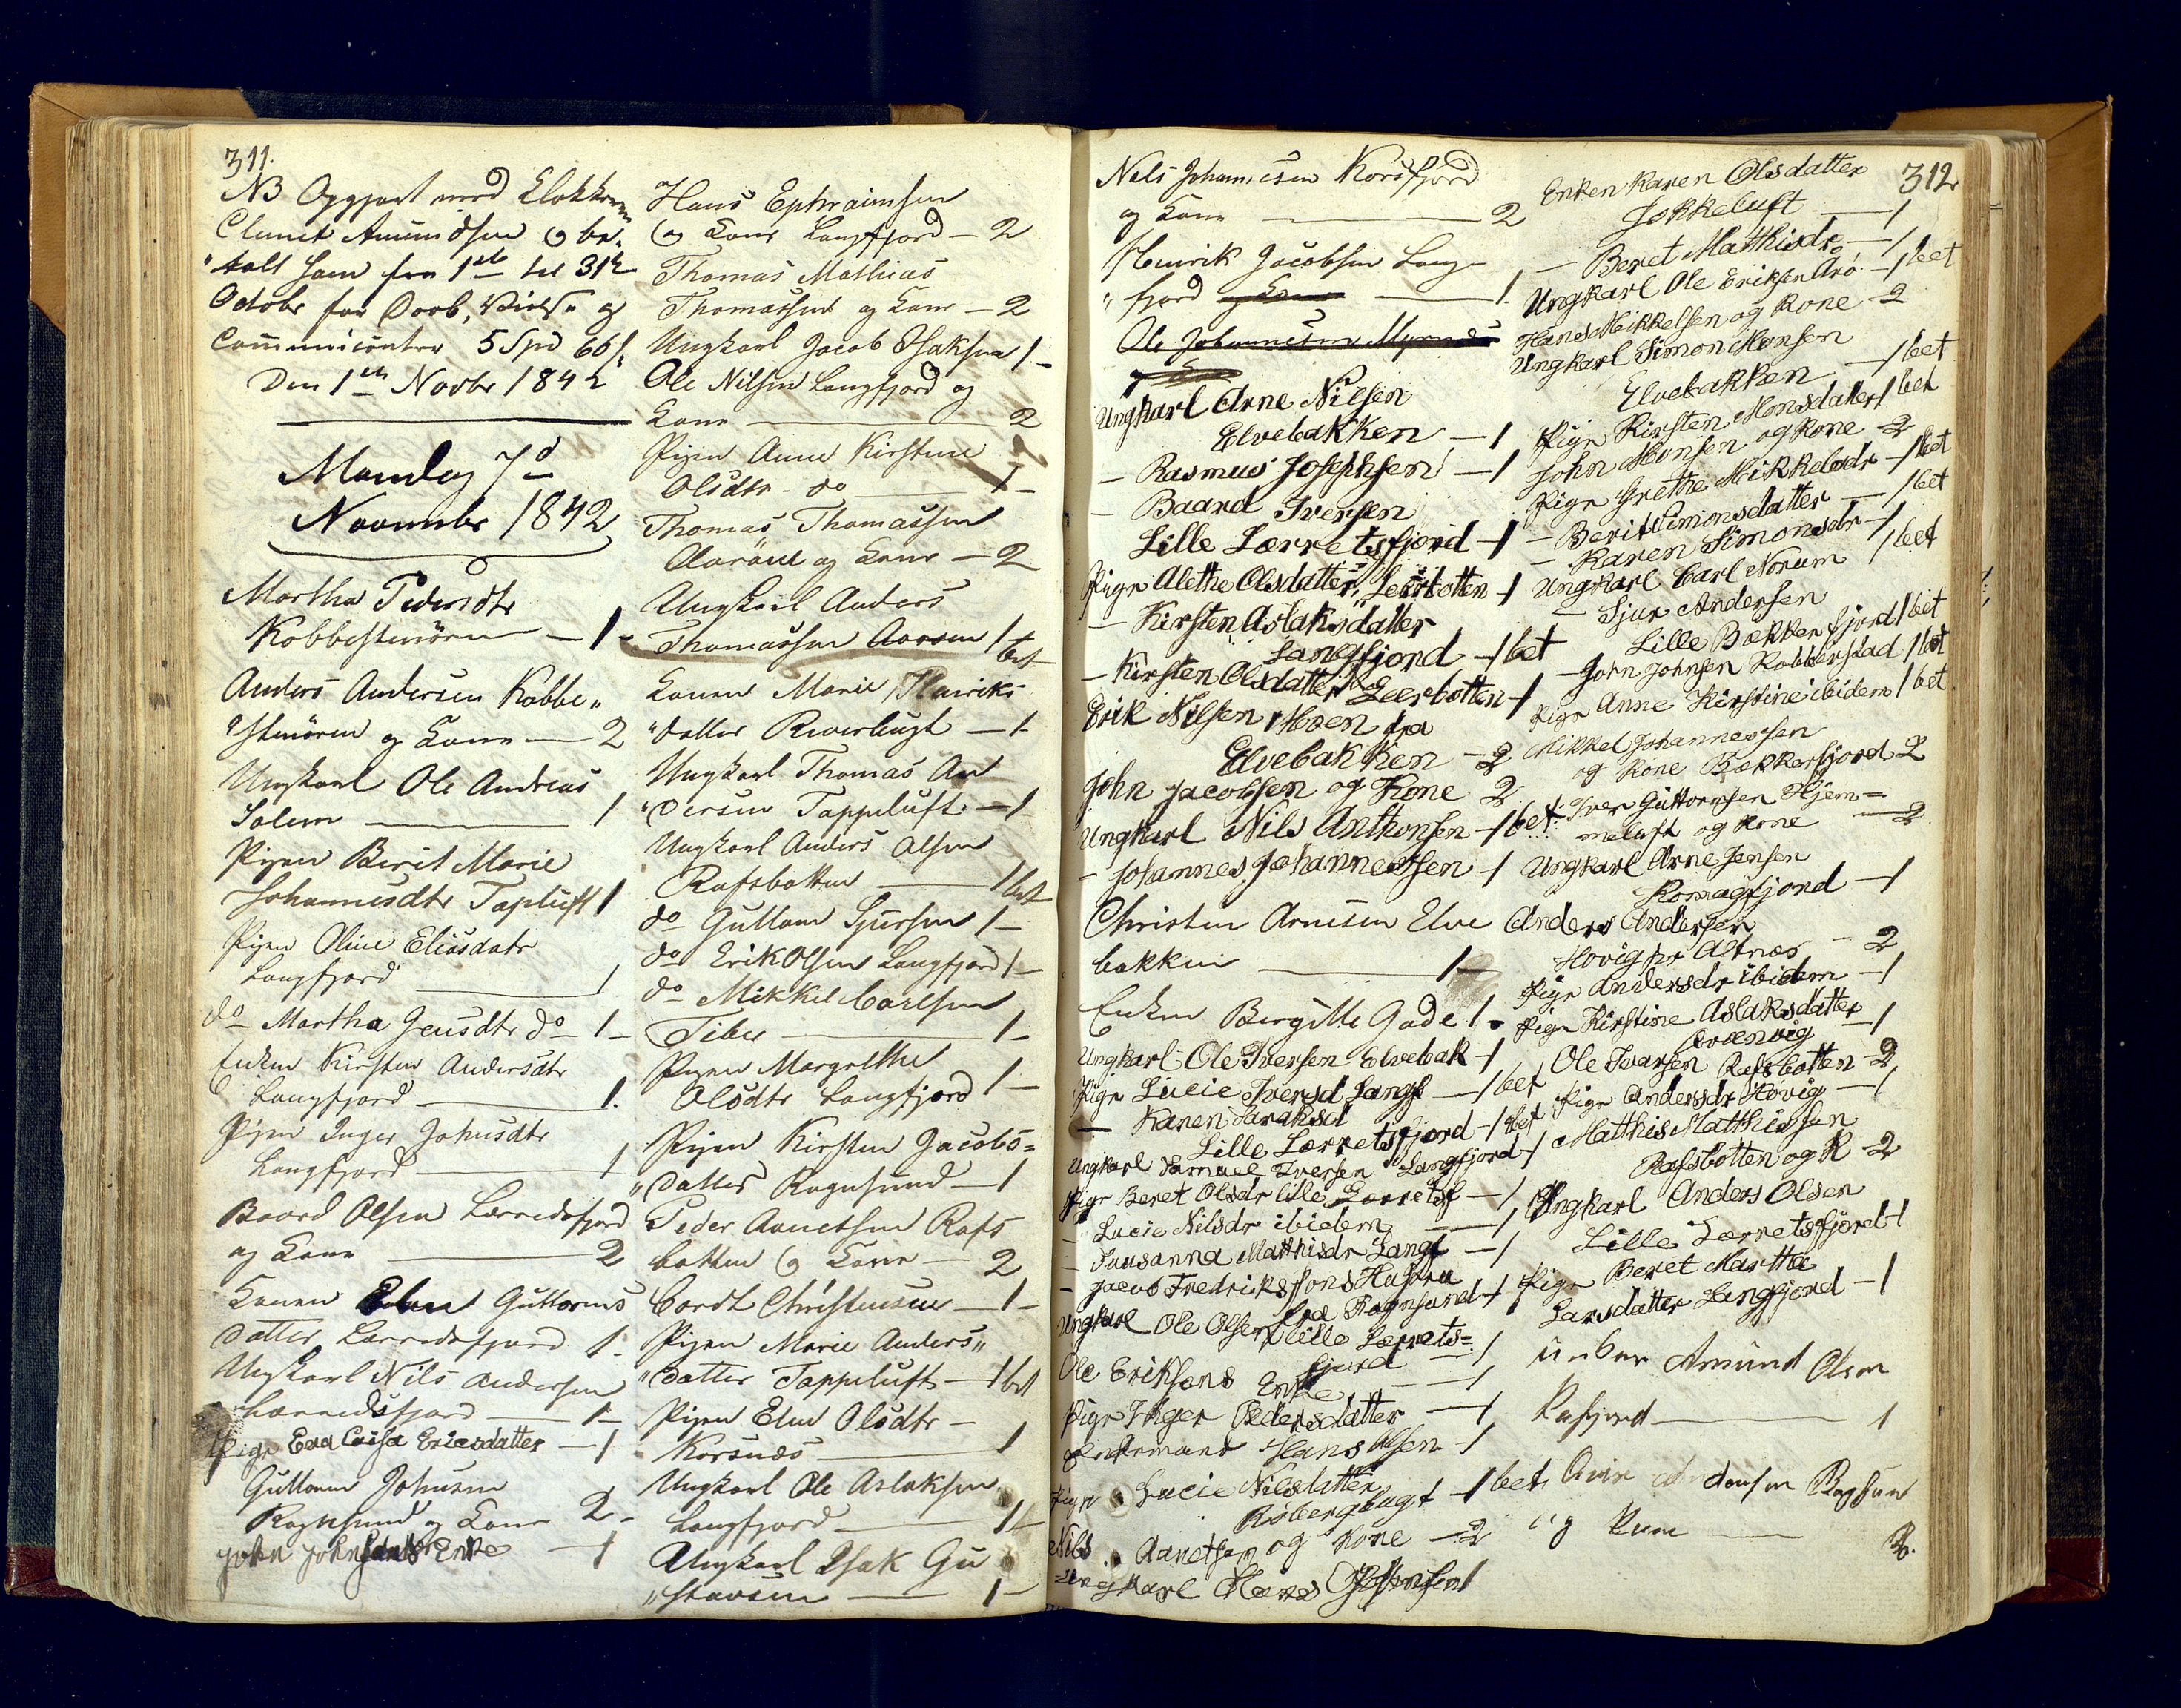 311.
NB Opgjort med Klokkeren
Clemet Amundsen og be„
„talt ham fra 1ste til 31te
Octobr for Daab, Vielse og
Communicanter 5 Spd 66 s.
Den 1ste Novbr 1842
Mandag 7d
November 1842
Martha Pedersdtr
Kobbestenören — 1 -
Anders Andersen Kobbe„
„stenören og Kone — 2
Ungkarl Ole Andreas
Solem — 1
Pigen Berit Marie
Johannesdtr Tapluft 1
Pigen Oline Eliasdatr
Langfjord — 1
do Martha Jensdtr do — 1 -
Enken Kirsten Andersdtr
Langfjord — 1.
Pigen Inger Johnsdtr
Langfjord — 1
Baard Olsen Lerredsfjord
og Kone — 2
Konen Elen Guttorms
datter Lerredsfjord 1 -
Ungkarl Nils Andersen
Lerredsfjord — 1 -
Pige Eva Caisa Ericsdatter — 1
Guttorm Johnsen
Rognsund og Kone 2 -
John Johnsens Enke — 1
Hans Ephraimsen
og Kone Langfjord — 2
Thomas Mathias
Thomassen og Kone — 2
Ungkarl Jacob Isaksen 1 -
Ole Nilsen Langfjord og
Kone — 2
Pigen Anne Kirstine
Olsdtr do — 1 -
Thomas Thomassen
Aaröen og Kone — 2
Ungkarl Anders
Thomassen Aaröen 1 bet
Konen Marie Henriks
„datter Riverbugt — 1 -
Ungkarl Thomas An
„dersen Tappeluft — 1
Ungkarl Anders Olsen
Rafsbotten — 1 bet
do Guttorm Sjursen 1 -
do Erik Olsen Langfjord 1 -
do Mikkel Carlsen
Tiber — 1 -
Pigen Margrethe
Olsdtr Langfjord 1 -
Pigen Kirsten Jacobs=
„datter Rognsund — 1
Peder Anretsen Rafs
botten og Kone — 2
Cordt Christensen — 1 -
Pigen Marie Anders„
„datter Tappeluft — 1 bet
Pigen Elen Olsdtr —
Korsnæs — 1
Ungkarl Ole Aslaksen
Langfjord — 1 -
Ungkarl Isak Gu
„stavsen — 1 -
312
Nels Johannesen Korsfjord
og Kone — 2
Henrik Jacobsen Lang-
„fjord og Kone — 1.
Ole Johannesen
Ungkarl Arne Nilsen
Elvebakken — 1
— Rasmus Josephsen — 1
— Baard Iversen
Lille Lerretsfjord — 1
Pige Alethe Olsdatter, Leerbotten 1
— Kirsten Aslaksdatter
Langfjord — 1 bet
— Kirsten Olsdatter Leerbotten — 1
Erik Nilsen Moen fra
Elvebakken — 2
John Jacobsen og Kone 2
Ungkarl Nils Anthonsen — 1 bet
— Johannes Johannessen — 1
Christen Arnesen Elve
bakken — 1 -
Enken Bergitte Gade 1 -
Ungkarl Ole Iversen Elvebak — 1
Pige Lucie Iversd Langf — 1 bet
— Karen Isaksd
Lille Lerretsfjord — 1 bet
Ungkarl Samuel Iversen Langfjord — 1
Pige Beret Olsdr lille Lerretsf — 1
— Lucie Nilsdr ibidem — 1
— Susanna Matthisdr Langf — 1
— Jacob Fredrikssons Hustru
fra Rognsund — 1
Ungkarl Ole Olsen lille Lerrets=
fjord — 1
Ole Eriksens Enke — 1
Pige Inger Pedersdatter — 1
Enkemand Hans Olsen — 1
Pige Lucie Nilsdatter
Risbergbugt — 1 bet
Nils Aanetsen og Kone — 2
Ungkarl Hans Johnsen 1
Enken Karen Olsdatter
Jokkeluft — 1
— Beret Matthisdr — 1
Ungkarl Ole Eriksen Arö — 1 bet
Hans Mikkelsen og Kone — 2
Ungkarl Simon Monsen
Elvebakken — 1 bet
Pige Kirsten Monsdatter 1 bet
John Monsen og Kone — 2
Pige Grethe Mikkelsdr — 1 bet
— Berit Simonsdatter — 1 bet
— Karen Simonsdr — 1
Ungkarl Carl Norum 1 bet
— Sjur Andersen
Lille Bekkerfjord 1 bet
— John Johnsen Kobberstad 1 bet
Pige Anne Kirstine ibidem 1 bet
Mikkel Johannessen
og Kone Bekkerfjord 2
Iver Guttormsen Hjem=
meluft og Kone — 2
Ungkarl Arne Jensen
Komagfjord — 1
Anders Andersen
Hovig pr Altnæs — 2
Pige Andersdr ibidem — 1
Pige Kirstine Aslaksdatter
— 1
Ole Ivarsen Rafsbotten — 2
Pige Andersdr Hovig — 1
Matthis Matthissen
Rafsbotten og K — 2
Ungkarl Anders Olsen
Lille Lerretsfjord 1
Pige Beret Martha
Larsdatter Langfjord — 1
Amund Olsen
Rafsjord — 1
Bogsund
og Kone — 2.